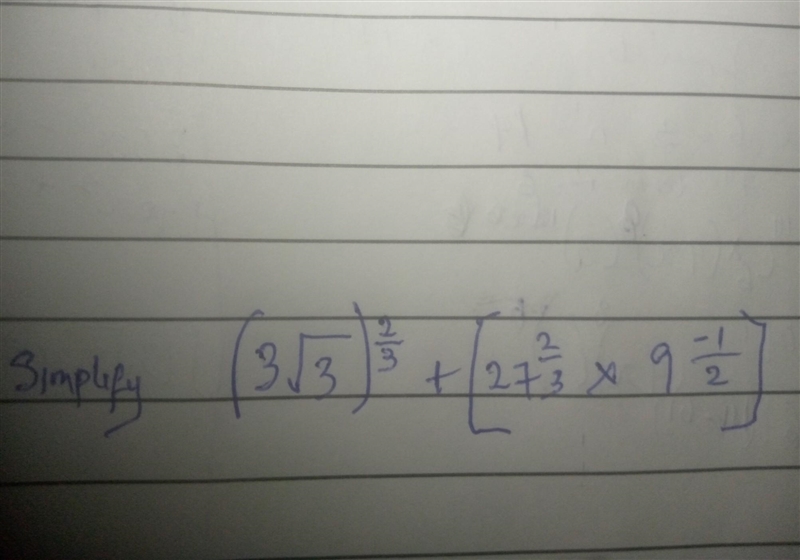 Simplify (3√3)^(2/3) + [27^(2/3) × 9^(-1/2)]